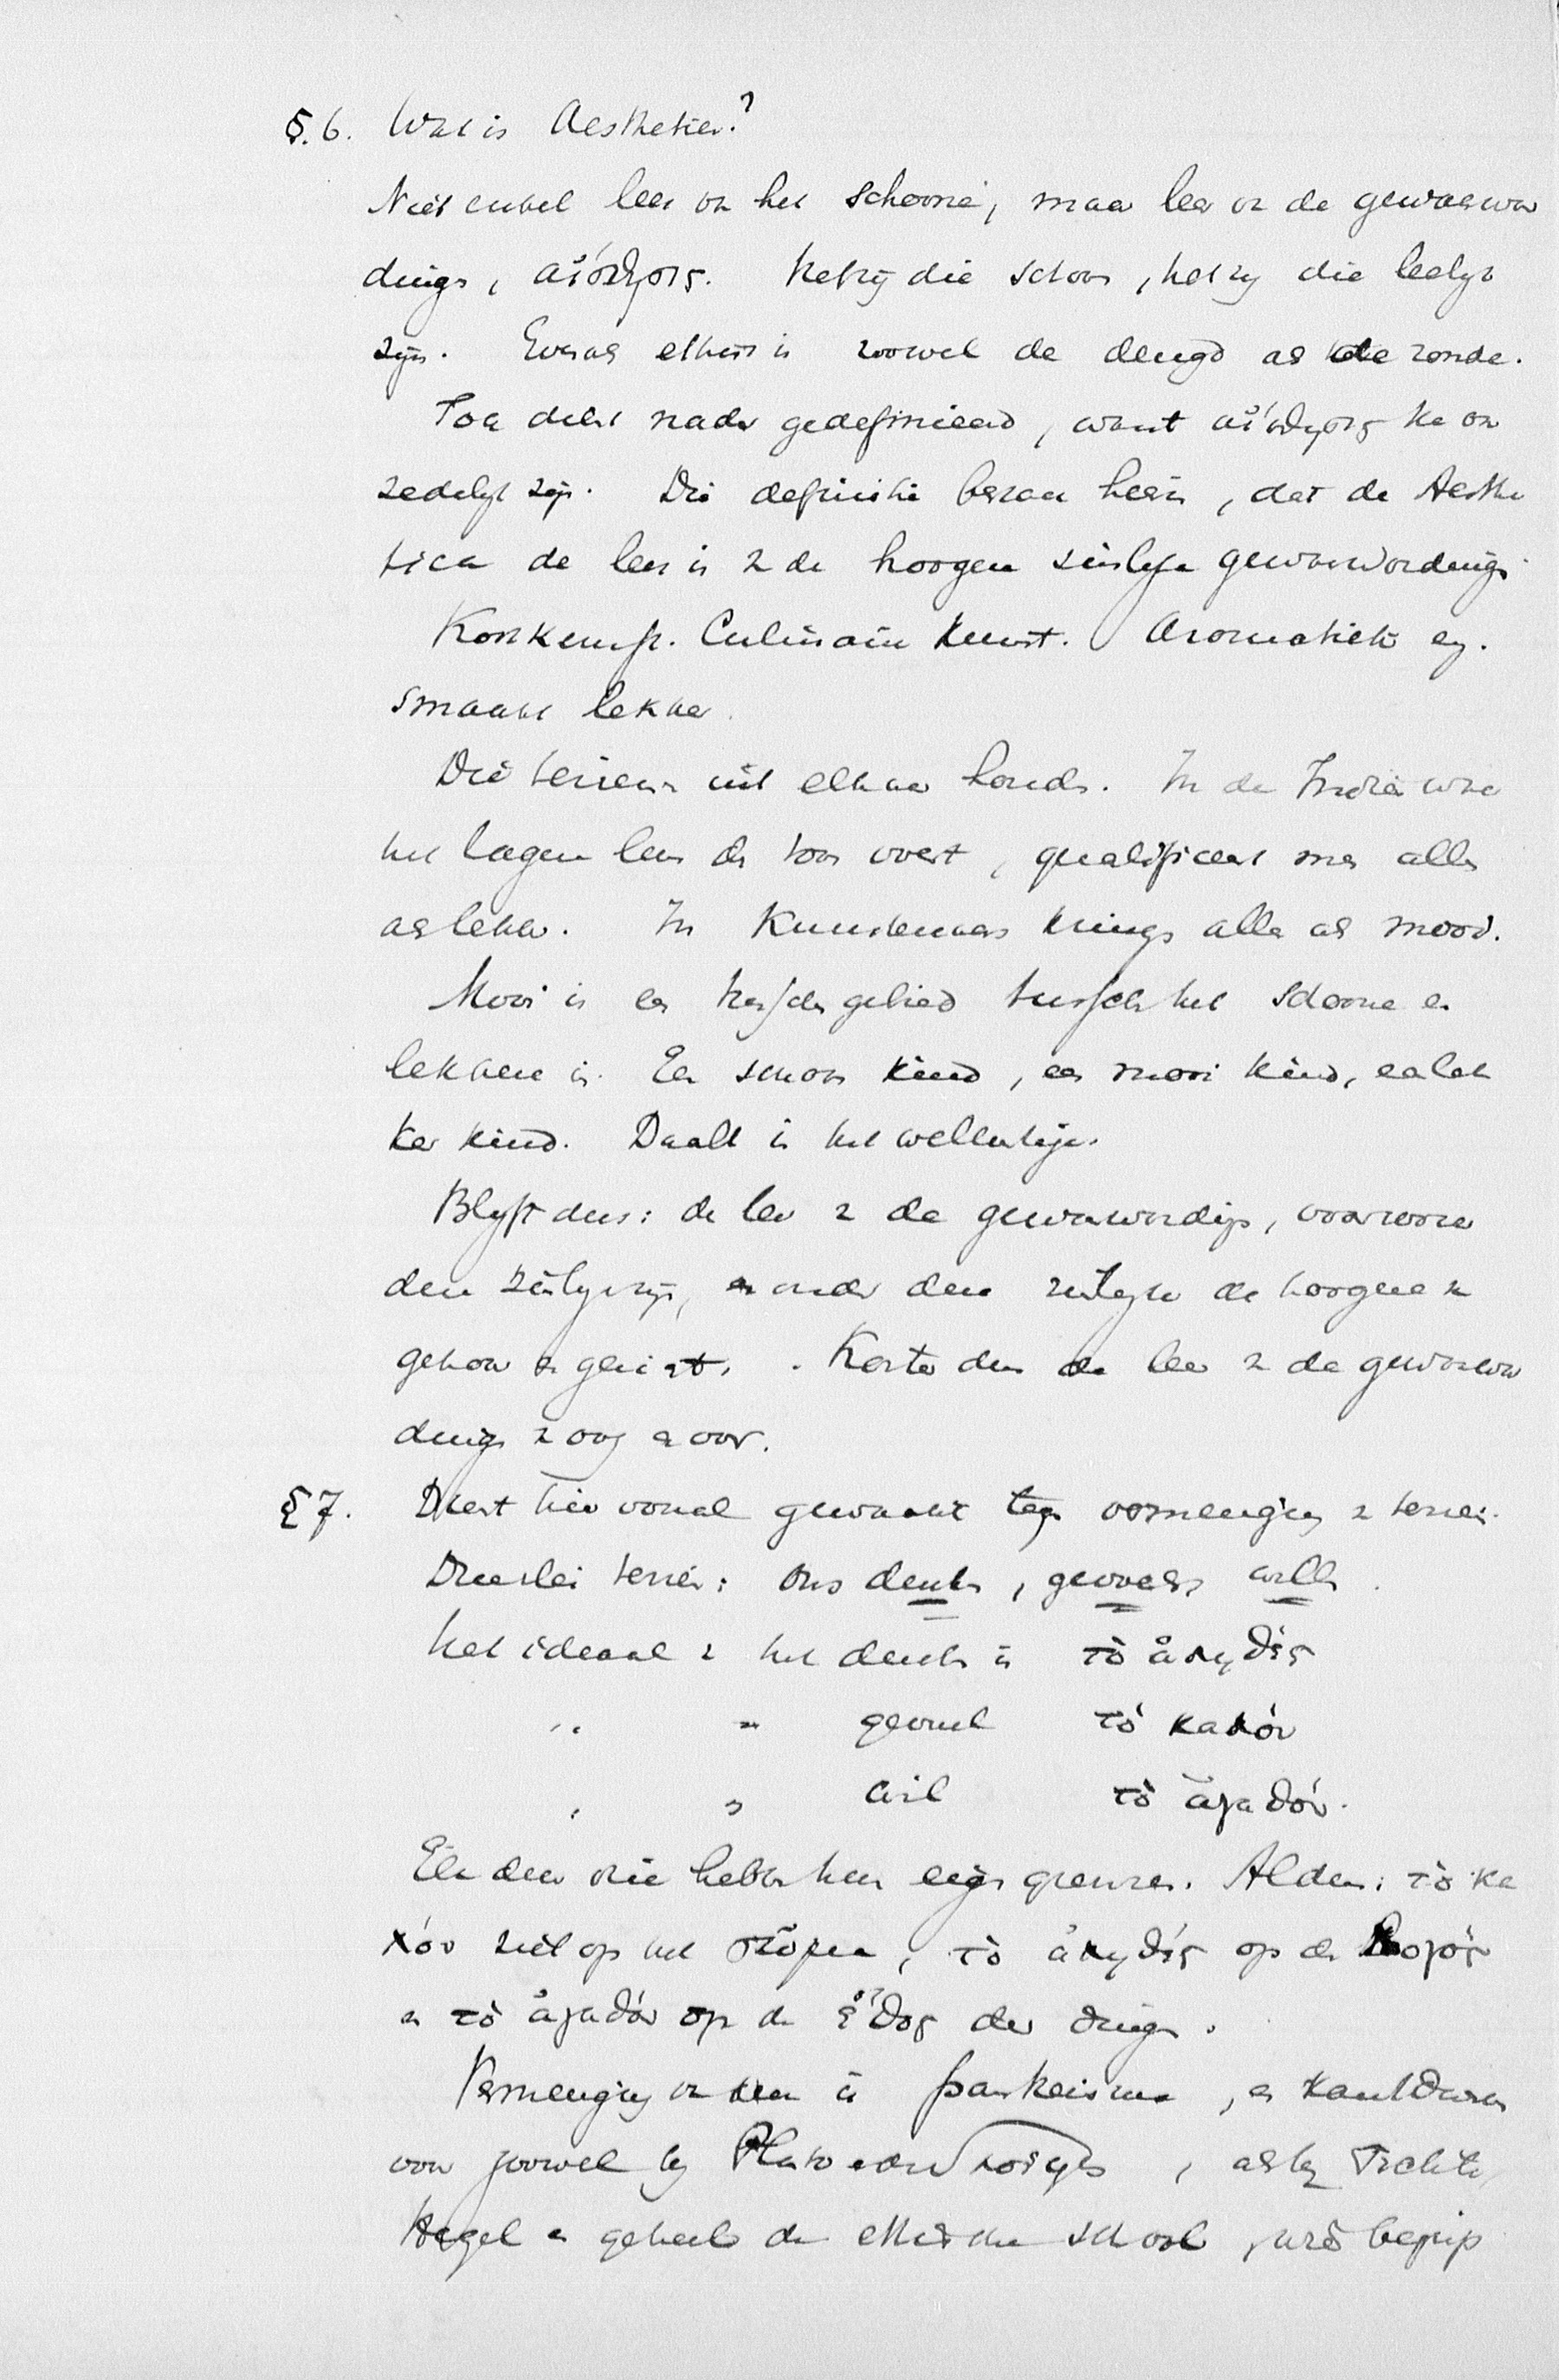 §. 6. Wat is Aesthetica?
Niet enkel leer vh het schoone, maar leer vn de gewaarwor
dings, αἴσθησις. Hetzij die schoon, hetzij die leelijk
zijn. Evenas ethica is zoowel de deugd as de zonde.
Toch dient nader gedefinieerd, want αἴσθησις ka on
zedelijk zijn. Die definitie bestaa hierin, dat de Aesthe
tica de leer is v de hoogere zinlijke gewaarwordings
Kookkunst. Culinaire kunst. Aromatiek eg.
smaakt lekker.
Die terreinen uit elkaar houden. In de Indië waar
het lagere leven de toon voert, qualificeert men alles
as lekker. In Kunstenaars krings alles as mooi.
Mooi is een tusschengebied tusschen het schoone en
lekkere in. Een schoon kind, een mooi kind, ea lek
ker kind. Daalt in het wellustige.
Blijft dus: de leer v de gewaarwordigs, voorzoover
deze zinlijk zijn, en onder deze zinlijke de hoogere v
gehoor en gezicht. Korter dus de leer v de gewaarwor
dings v oog en oor.
§ 7. Dient hier vooral gewaakt tegen vermenging v terrein.
Drieerlei terrein: ons denken, gevoelen willen.
Het ideaal v het denken is τὸ ἀληθές
" " gevoel τὸ καλόν
" " wil τὸ ἀγαθόν.
Elk dezer drie hebben hun eigen grenzen. Aldus: τὸ κα
λόν ziet op het σῶμα, τὸ ἀληθές op de λογός
en τὸ ἀγαθόν op de ἔθος der dingen.
Vermenging vn deze is pantheisme, en komt daarom
voor zoowel bij Plato , as bij Fichte,
Hegel en geheel de ethische school, wier begrip